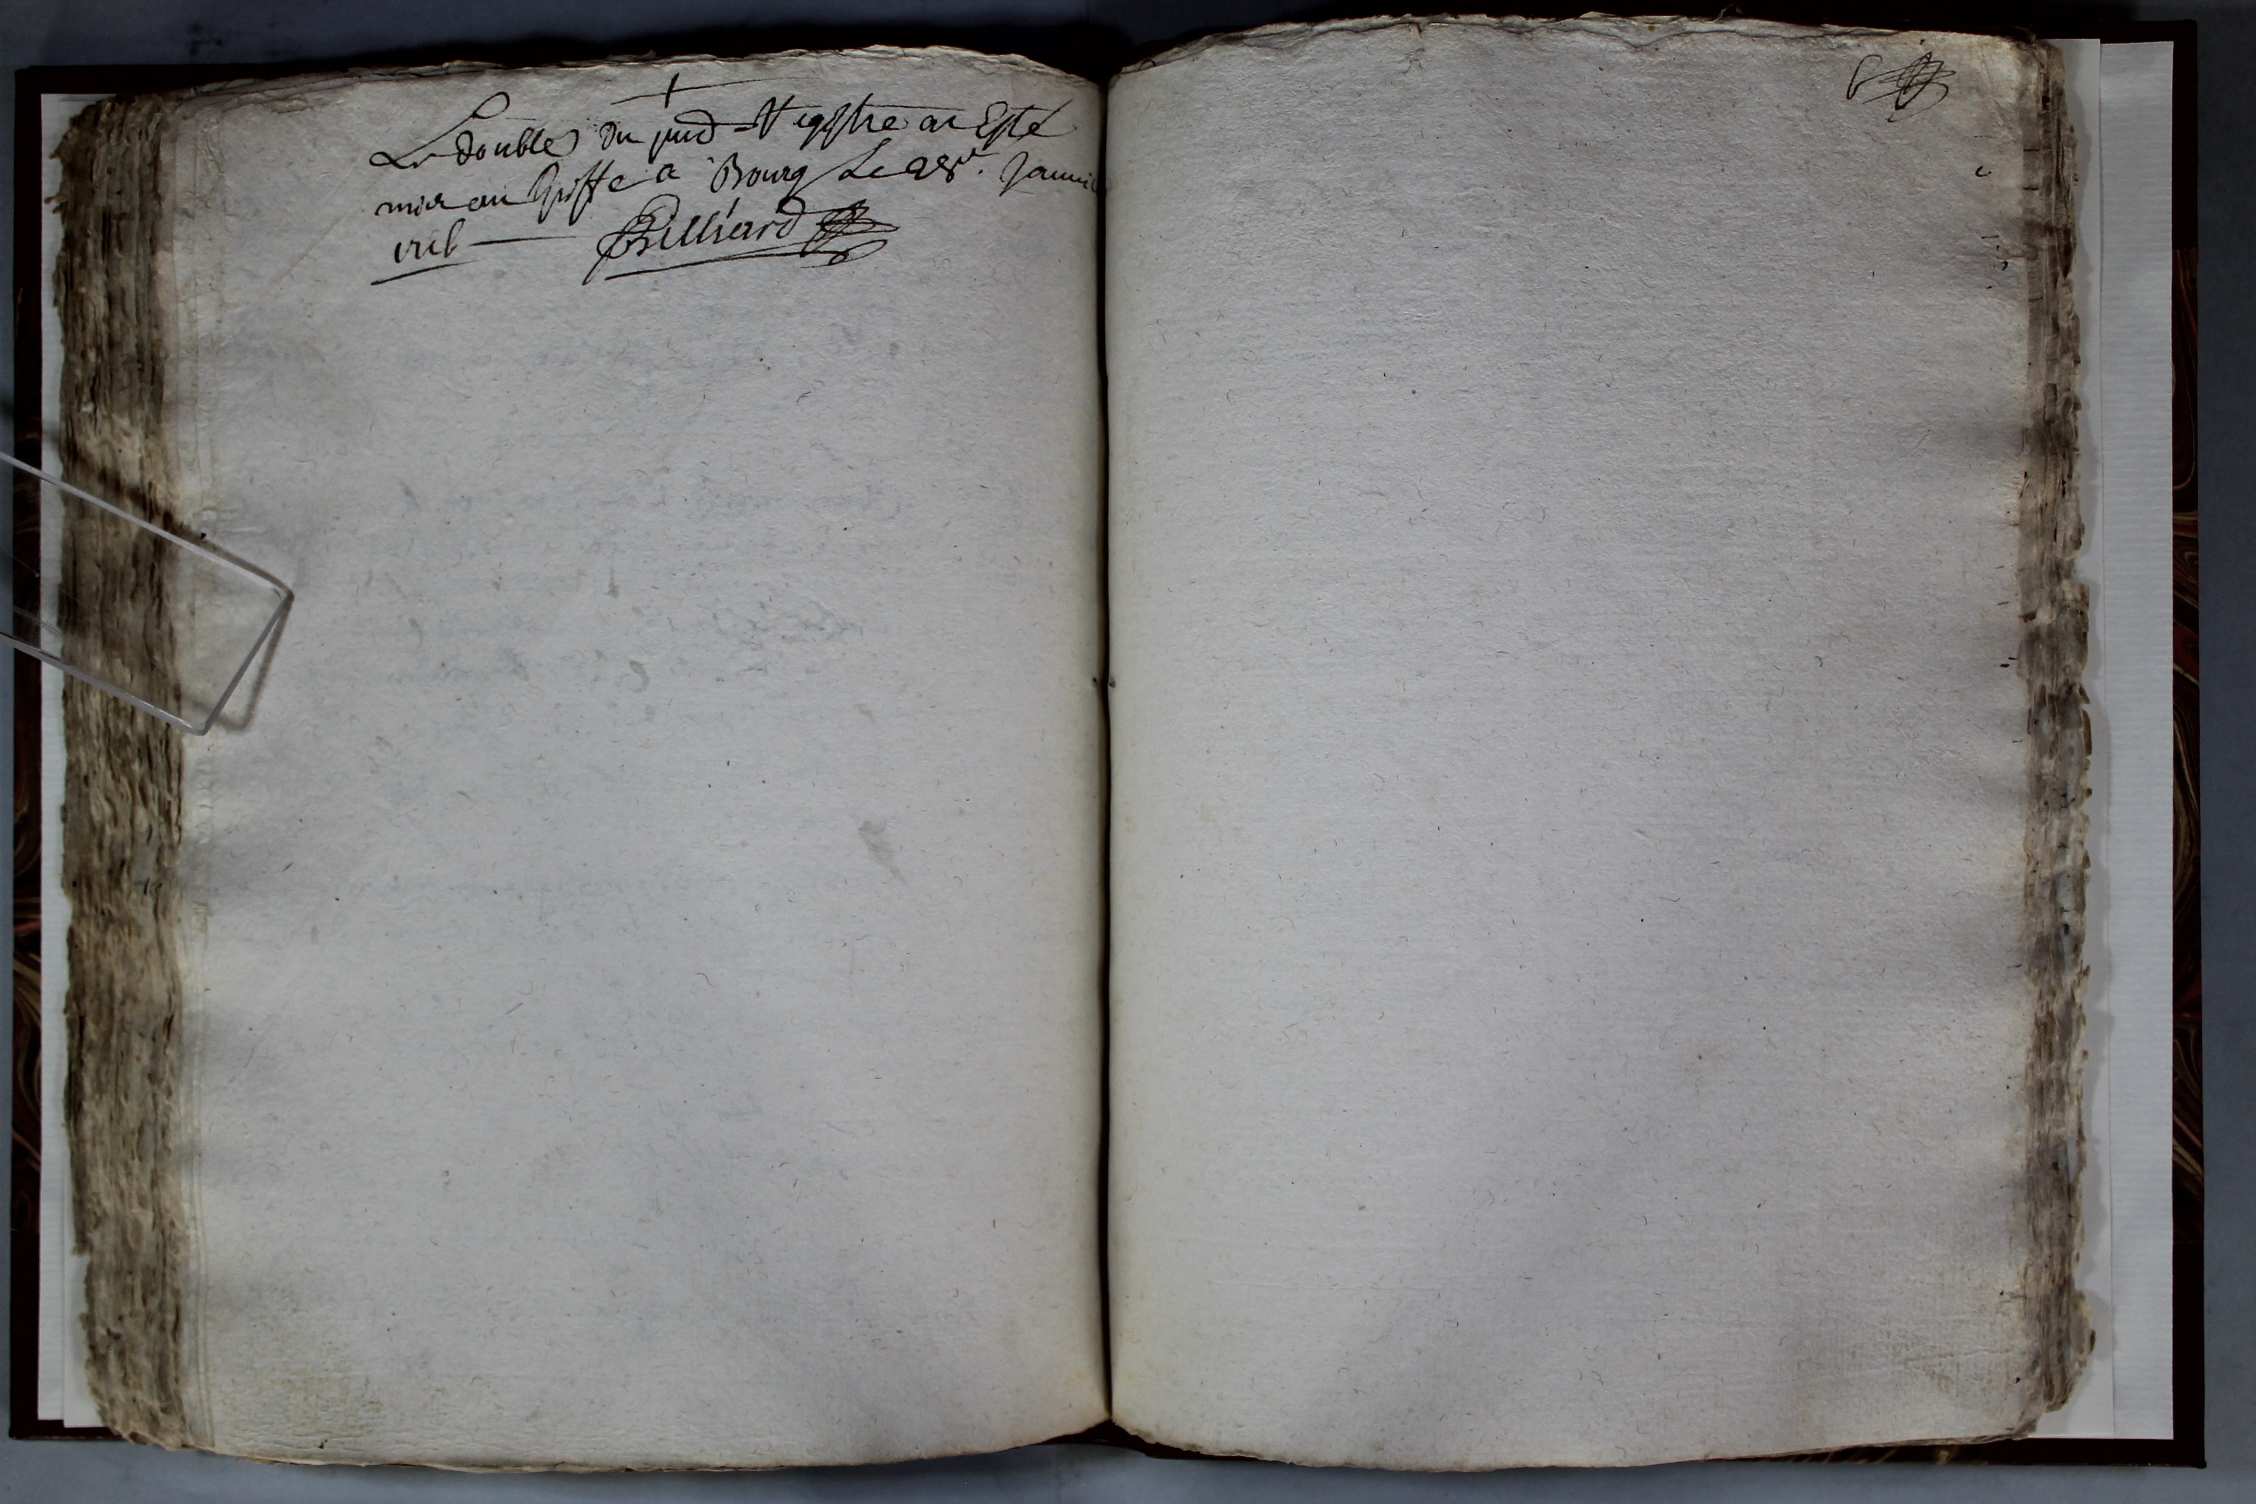 +
Le double du pnt Registre a esté
mis au Greffe a Bourg Le 28e. Janvier
Billiard
6